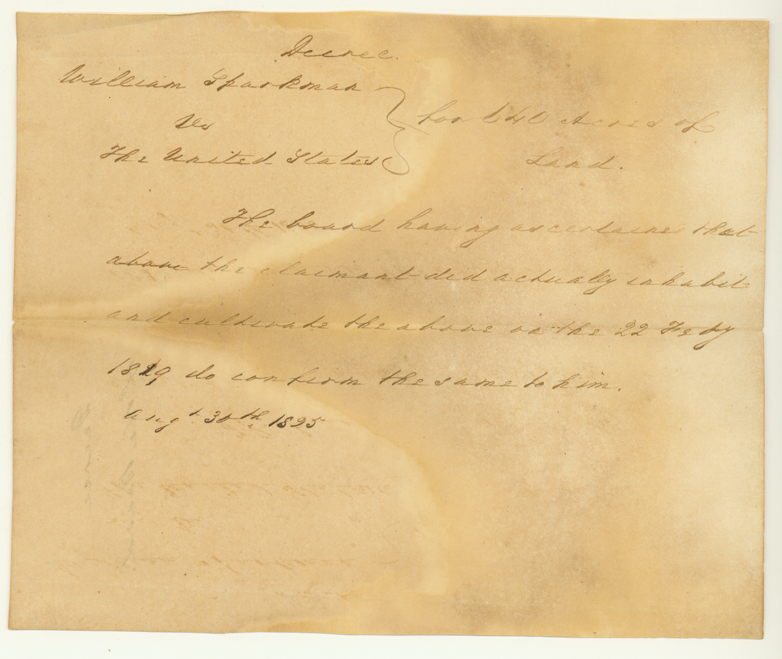 Decree.
William Sparkman
Vs
The United States
for 640 Acres of
Land.
The board having ascertained that
above the claimant did actually inhabit
and cultivate the above on the 22 Feby
1819 do confirm the same to him.
Augt 30th 1825